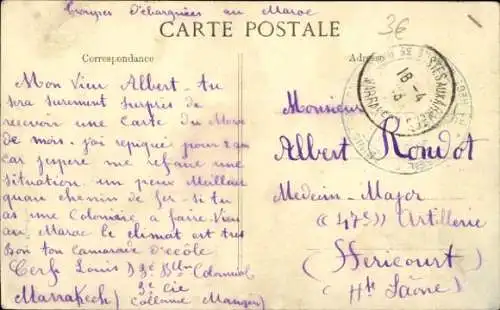 Troupes Débarquées au Maroc
3€
CARTE POSTALE
Correspondance
Adresse
Mon Vieu Albert - tu
sera surement surpris de
recevoir une Carte du Maroc
de moi. j'ai repiqué pour 2 ans
car j'espere me refaire une
situation un peux Meilleur
quau chemin de fer. si tu
as une Coloniere a faire. Viens
au Maroc le climat est tres
Bon ton camarade d'ecôle
Cerf Louis 3e Btn Colonial
3e Cie
Marrakech (Collonne Mangin)
Monsieur
Albert Rondot
Medecin-Major
«47e» Artillerie
(Hericourt)
(Hte Saône)
18-4